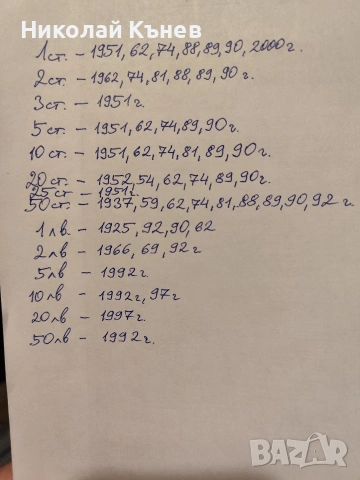 Николай Кънев
1 ст. - 1951, 62, 74, 88, 89, 90, 2000 г.
2 ст. - 1962, 74, 81, 88, 89, 90 г.
3 ст. - 1951 г.
5 ст. - 1951, 62, 74, 89, 90 г.
10 ст. - 1951, 62, 74, 81, 89, 90 г.
20 ст. - 1952, 54, 62, 74, 89, 90 г.
25 ст - 1951 г.
50 ст. - 1937, 59, 62, 74, 81, 88, 89, 90, 92 г.
1 лв. - 1925, 92, 90, 62
2 лв - 1966, 69, 92 г.
5 лв - 1992 г.
10 лв - 1992 г, 97 г
20 лв - 1997 г.
50 лв - 1992 г.
bazar